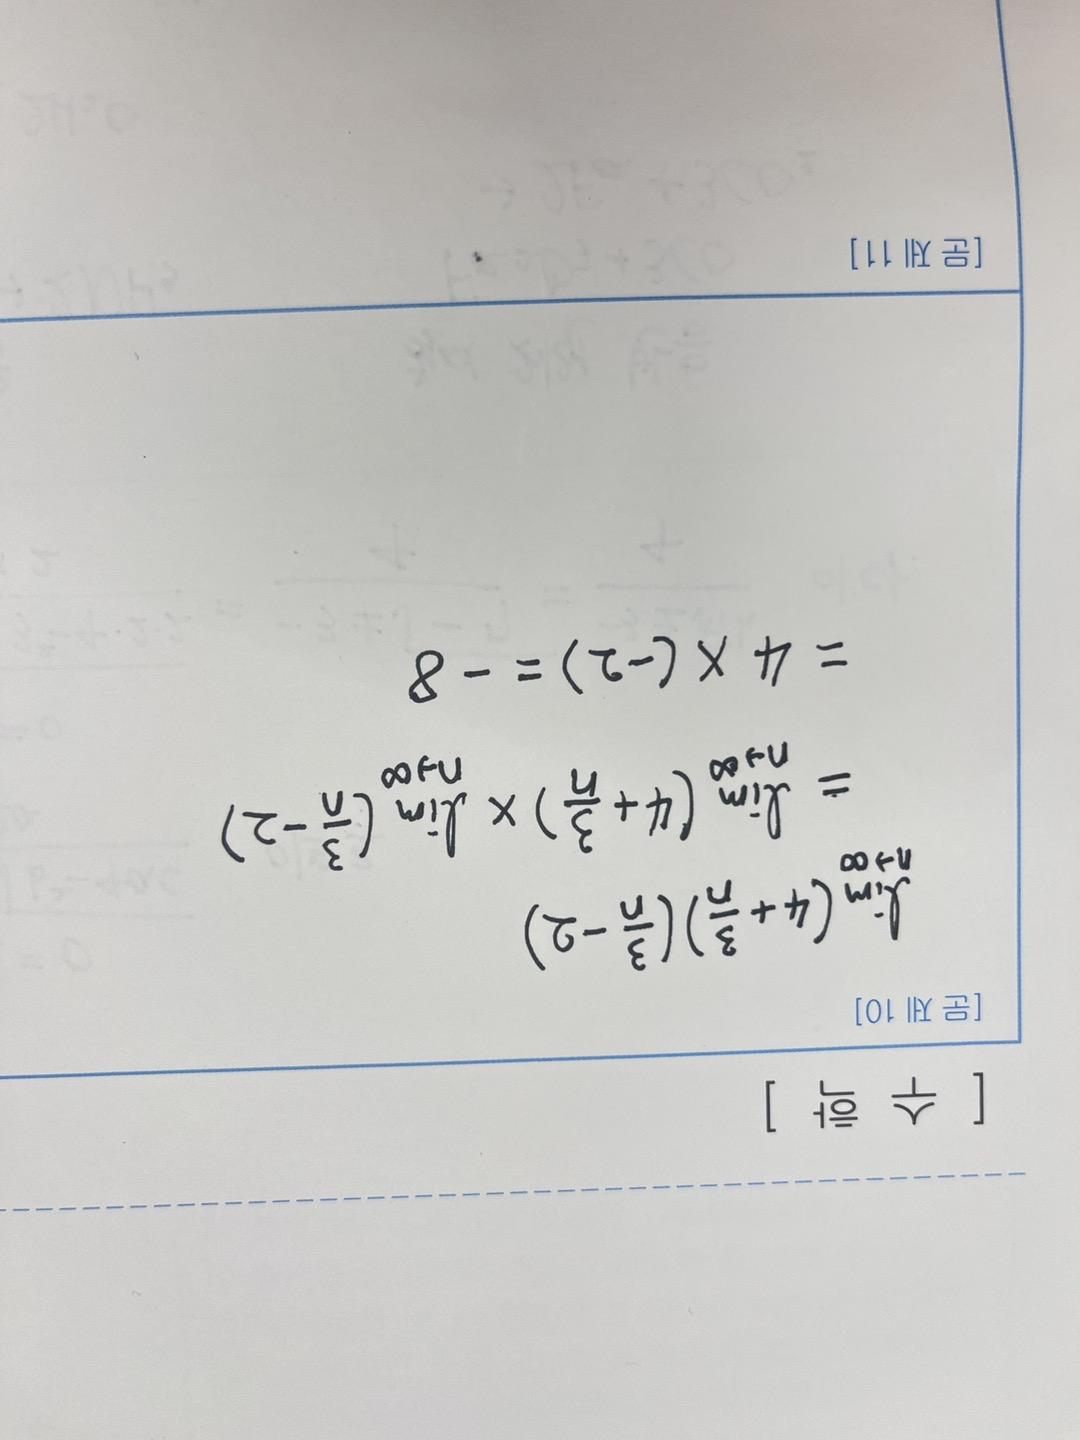 [ 수 학 ]
[문제 10]
lim n→∞ (4+3/n)(3/n-2)
= lim n→∞ (4+3/n) × lim n→∞ (3/n-2)
= 4 × (-2) = -8
[문제 11]